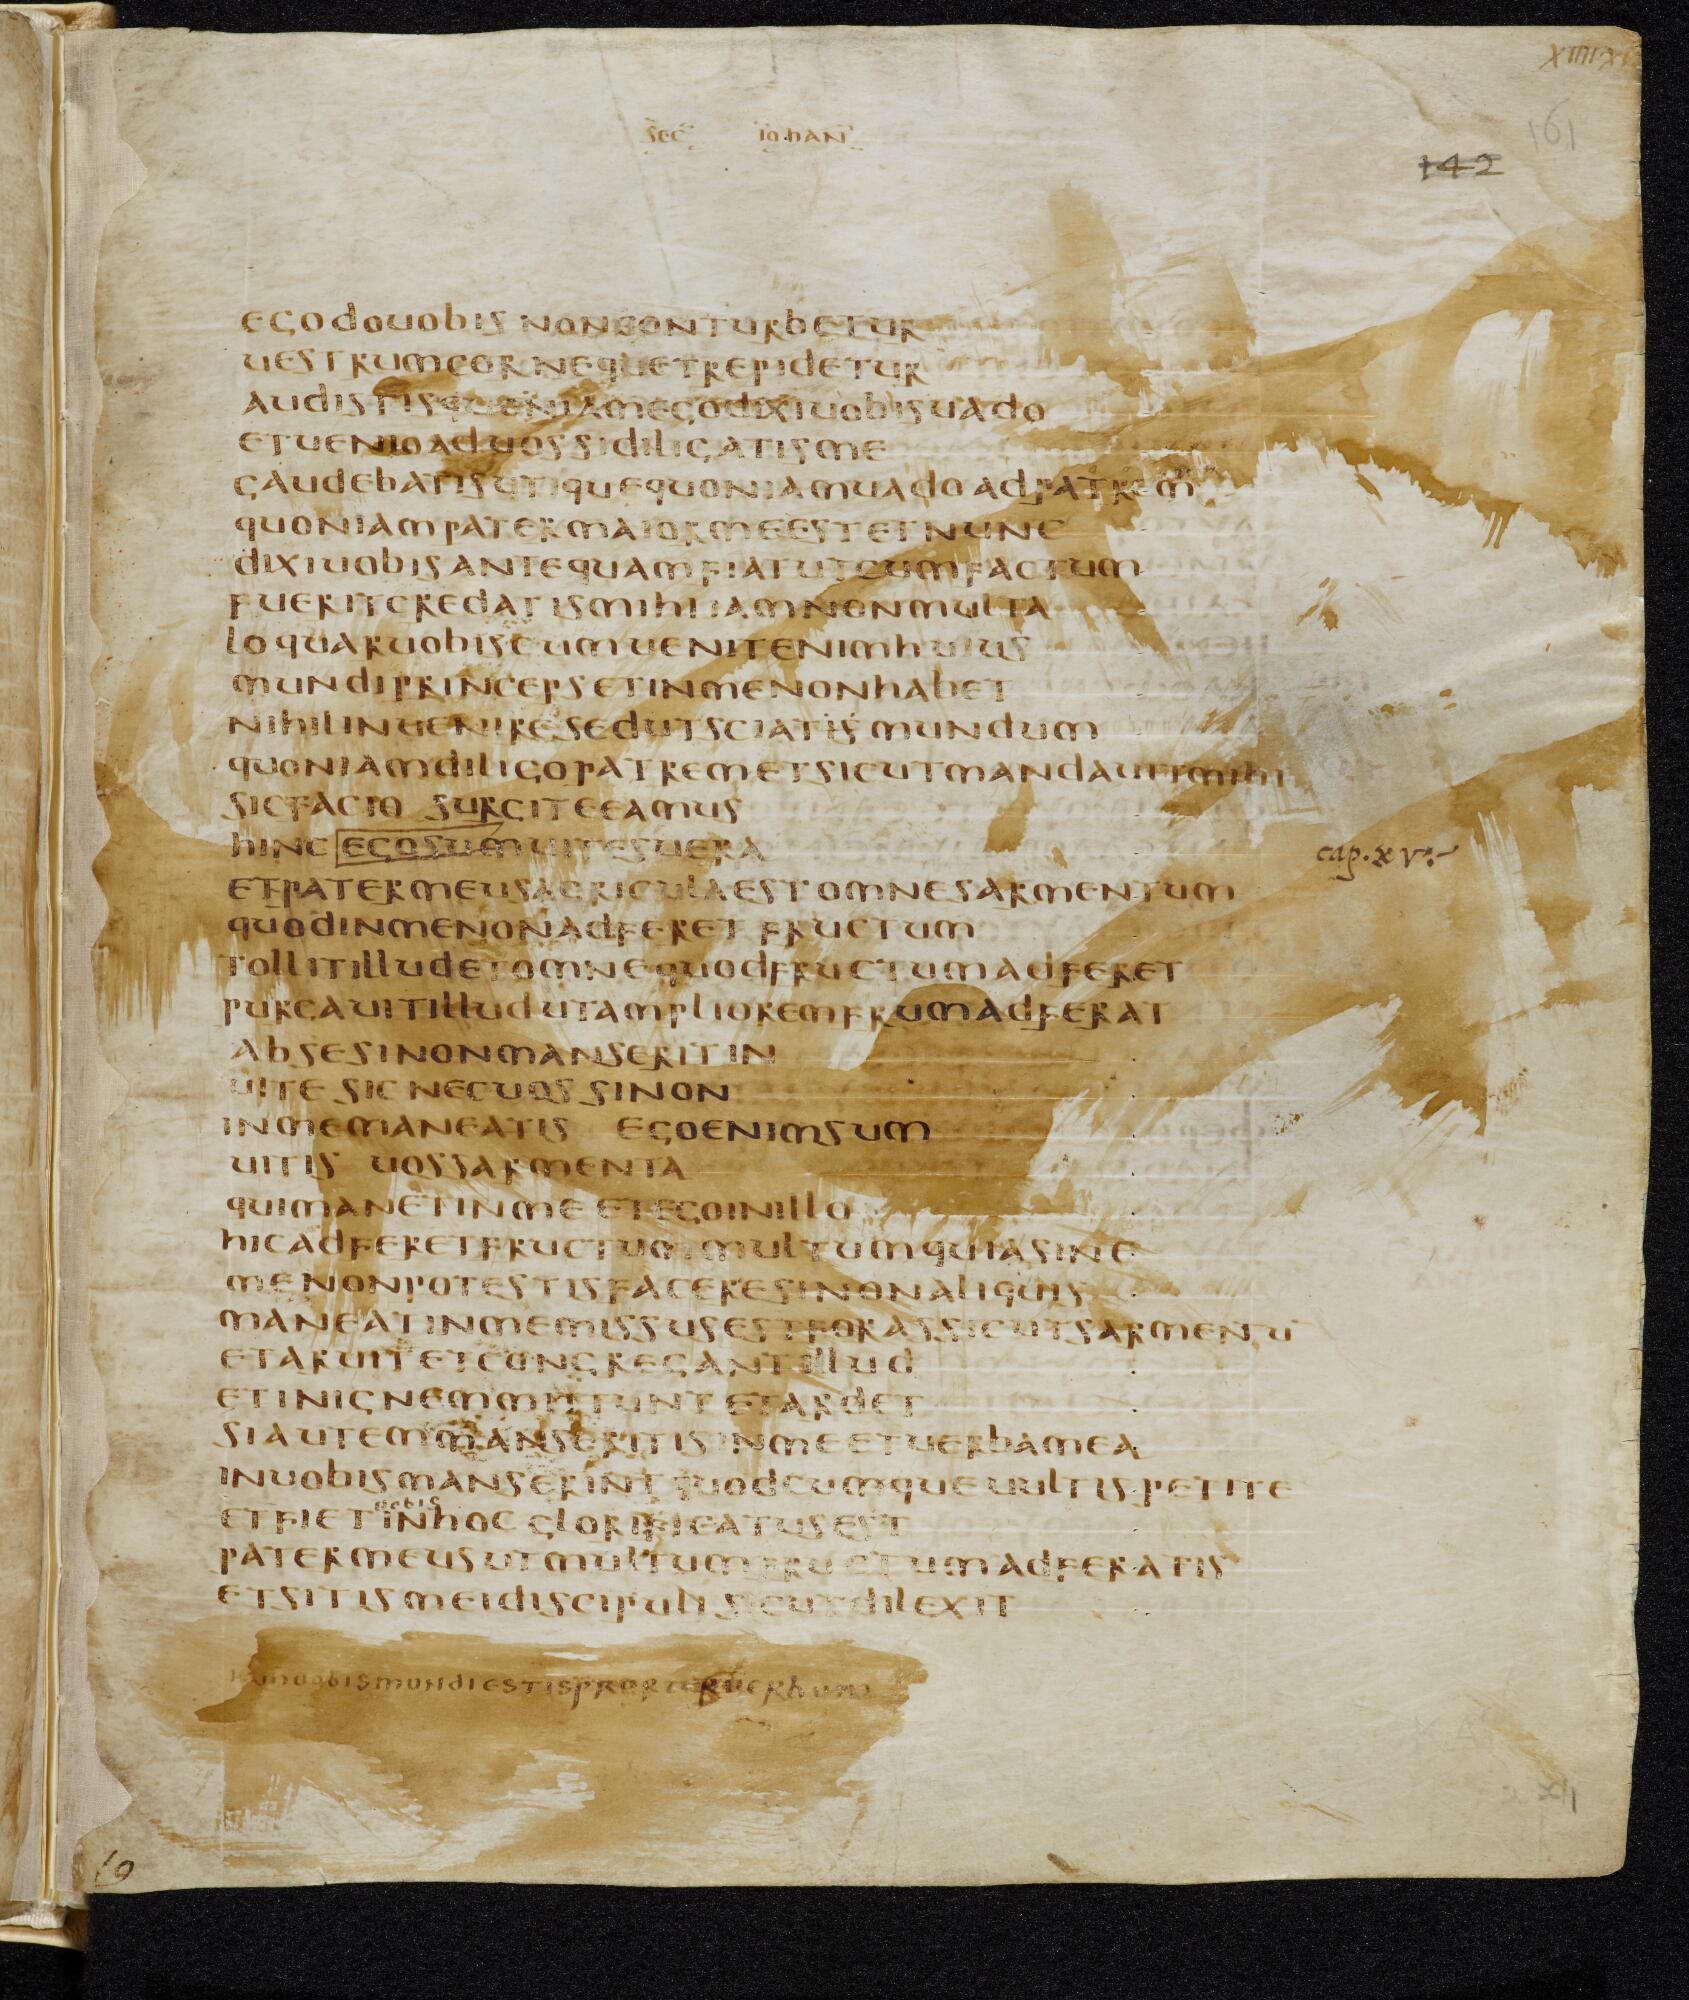 XIIII·XV
sec iohan
161
142
egodouobis nonconturbetur
uestrumcornequetrepidetur
audistisquoniamegodixiuobisuado
etuenioaduossidiligatisme
gaudebatisutiquequoniamuadoadpatrem
quoniampatermaiormeestetnunc
dixiuobisantequamfiatutcumfactum
fueritcredatismihiiamnonmulta
loquaruobiscumuenitenimhuius
mundiprincepsetinmenonhabet
nihilinueniresedutsciatismundum
quoniamdiligopatremetsicutmandauitmihi
sicfacio surgiteeamus
hinc egosumuitesuera
cap. xv
etpatermeusagriculaestomnesarmentum
quodinmenonadferet fructum
tollitilludetomnequodfructumadferet
purgauitilludutampliоremfrumadferat
absesinonmanseritin
uite sicnecuossinon
inmemaneatis egoenimsum
uitis uossarmenta
quimanetinme etegoinillo
hicadferetfructummultumquiasine
menonpotestisfaceresinonaliquis
maneatinmemissusestforassicutsarmentu
etaruit etcongregantillud
etinignemmittuntetardet
siautemmanseritisinmeetuerbamea
inuobismanserintquodcumqueuultispetite
uobis
etfietinhocglorificatusest
patermeusutmultumfructumadferatis
etsitismeidiscipulisicutdilexit
iamuobismundiestispropteruerbum
19